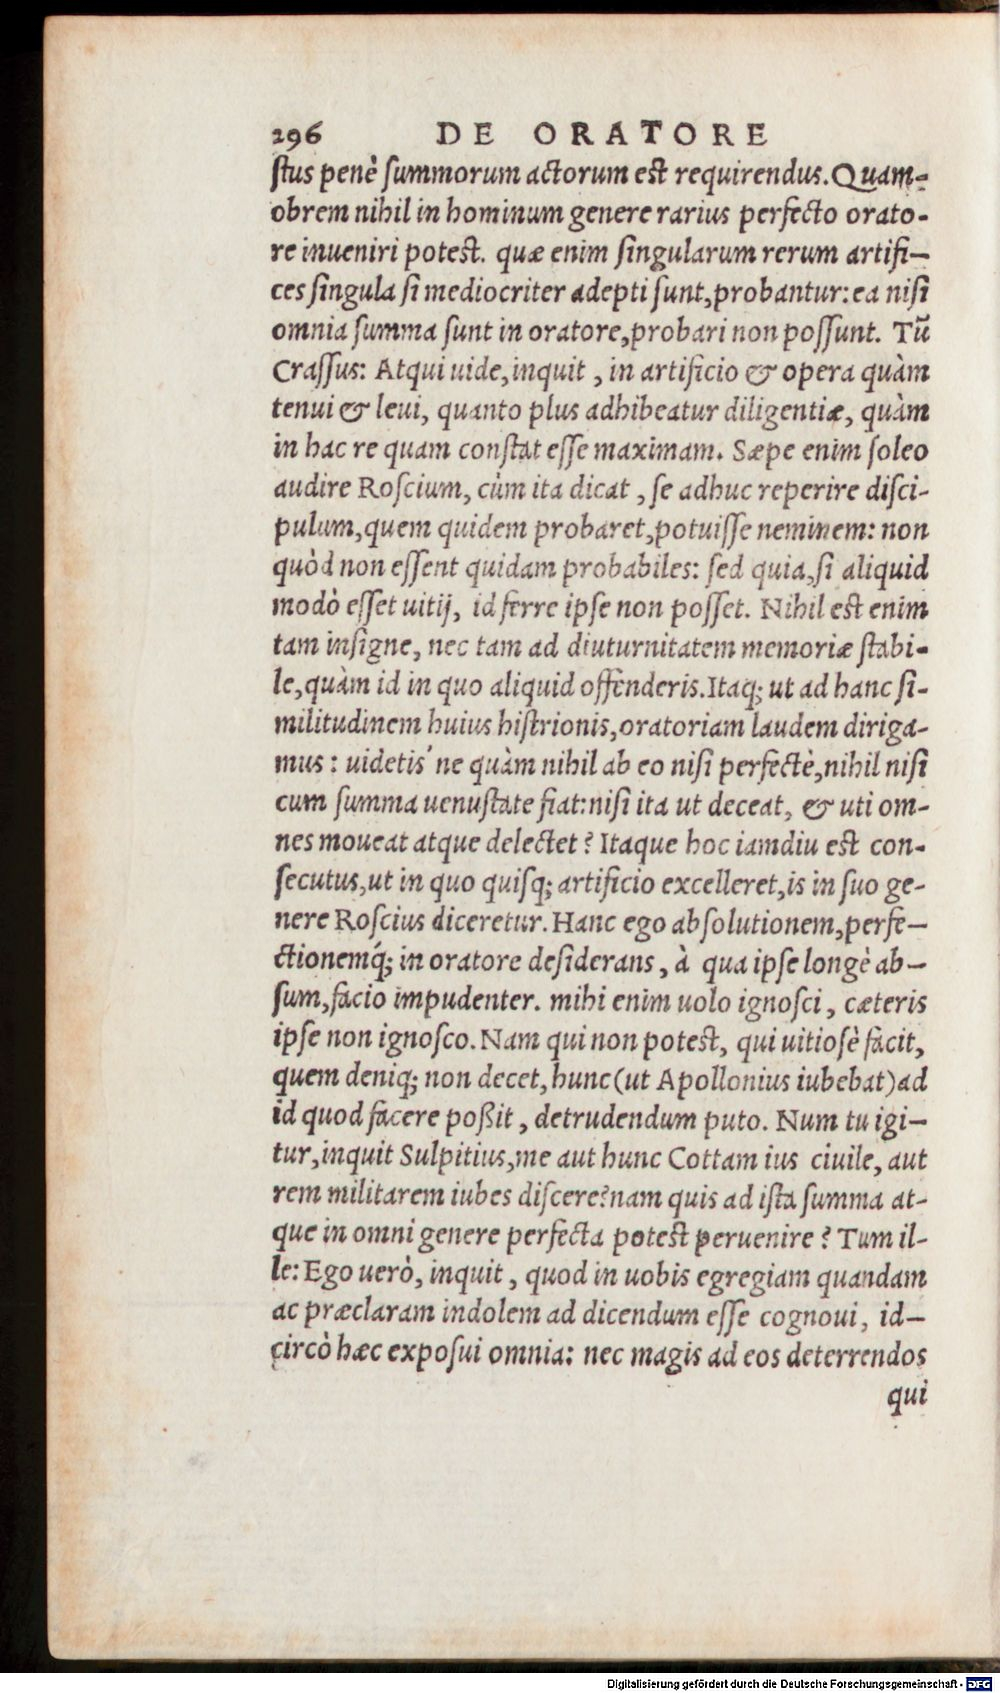 296 DE ORATORE
ſtus penè ſummorum actorum eſt requirendus. Quam-
obrem nihil in hominum genere rarius perfecto orato-
re inueniri poteſt. quæ enim ſingularum rerum artifi-
ces ſingula ſi mediocriter adepti ſunt, probantur: ea niſi
omnia ſumma ſunt in oratore, probari non poſſunt. Tū
Craſſus: Atqui uide, inquit, in artificio & opera quàm
tenui & leui, quanto plus adhibeatur diligentiæ, quàm
in hac re quam conſtat eſſe maximam. Sæpe enim ſoleo
audire Roſcium, cùm ita dicat, ſe adhuc reperire diſci-
pulum, quem quidem probaret, potuiſſe neminem: non
quòd non eſſent quidam probabiles: ſed quia, ſi aliquid
modò eſſet uitij, id ferre ipſe non poſſet. Nihil eſt enim
tam inſigne, nec tam ad diuturnitatem memoriæ ſtabi-
le, quàm id in quo aliquid offenderis. Itaq; ut ad hanc ſi-
militudinem huius hiſtrionis, oratoriam laudem diriga-
mus: uidetis' ne quàm nihil ab eo niſi perfectè, nihil niſi
cum ſumma uenuſtate fiat: niſi ita ut deceat, & uti om-
nes moueat atque delectet? Itaque hoc iamdiu eſt con-
ſecutus, ut in quo quiſq; artificio excelleret, is in ſuo ge-
nere Roſcius diceretur. Hanc ego abſolutionem, perfe-
ctionemq́; in oratore deſiderans, à qua ipſe longè ab-
ſum, facio impudenter. mihi enim uolo ignoſci, cæteris
ipſe non ignoſco. Nam qui non poteſt, qui uitioſè facit,
quem deniq; non decet, hunc (ut Apollonius iubebat) ad
id quod facere poßit, detrudendum puto. Num tu igi-
tur, inquit Sulpitius, me aut hunc Cottam ius ciuile, aut
rem militarem iubes diſcere? nam quis ad iſta ſumma at-
que in omni genere perfecta poteſt peruenire? Tum il-
le: Ego uerò, inquit, quod in uobis egregiam quandam
ac præclaram indolem ad dicendum eſſe cognoui, id-
circò hæc expoſui omnia: nec magis ad eos deterrendos
qui
Digitalisierung gefördert durch die Deutsche Forschungsgemeinschaft - DFG